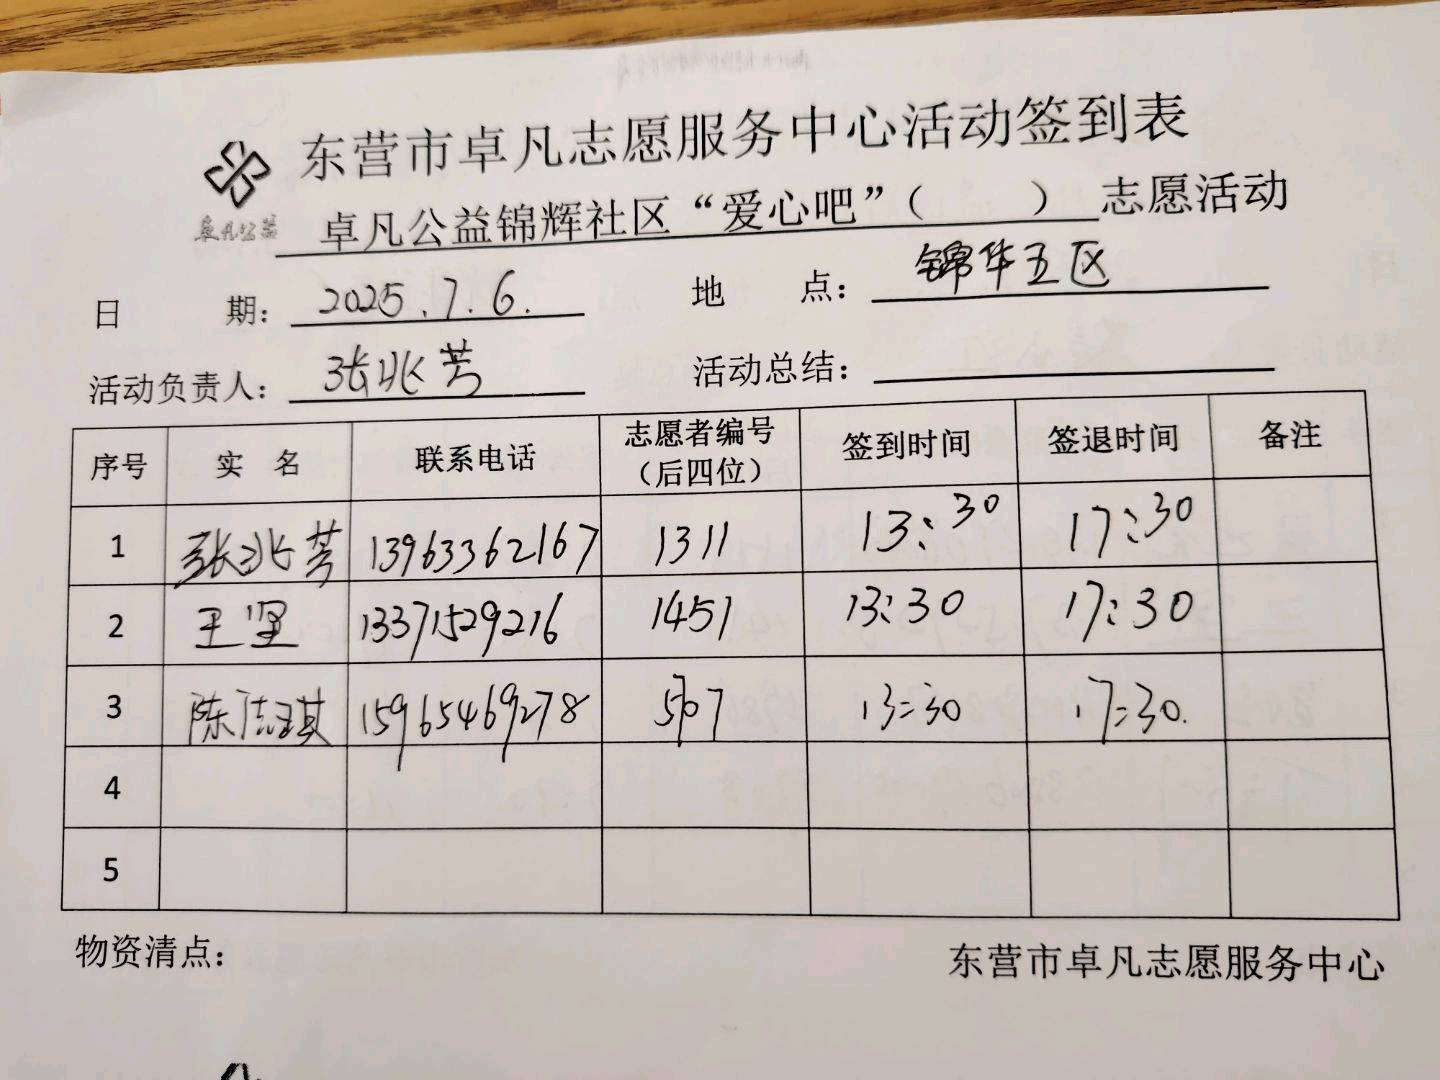 东营市卓凡志愿服务中心活动签到表
卓凡公益
卓凡公益锦辉社区“爱心吧”（ ）志愿活动
日 期： 2025.7.6. 地 点： 锦华五区
活动负责人： 张兆芳 活动总结：
序号 实 名 联系电话 志愿者编号（后四位） 签到时间 签退时间 备注
1 张兆芳 13963362167 1311 13:30 17:30
2 王坚 13371529216 1451 13:30 17:30
3 陈志琪 15965469278 507 13:30 17:30.
4
5
物资清点： 东营市卓凡志愿服务中心